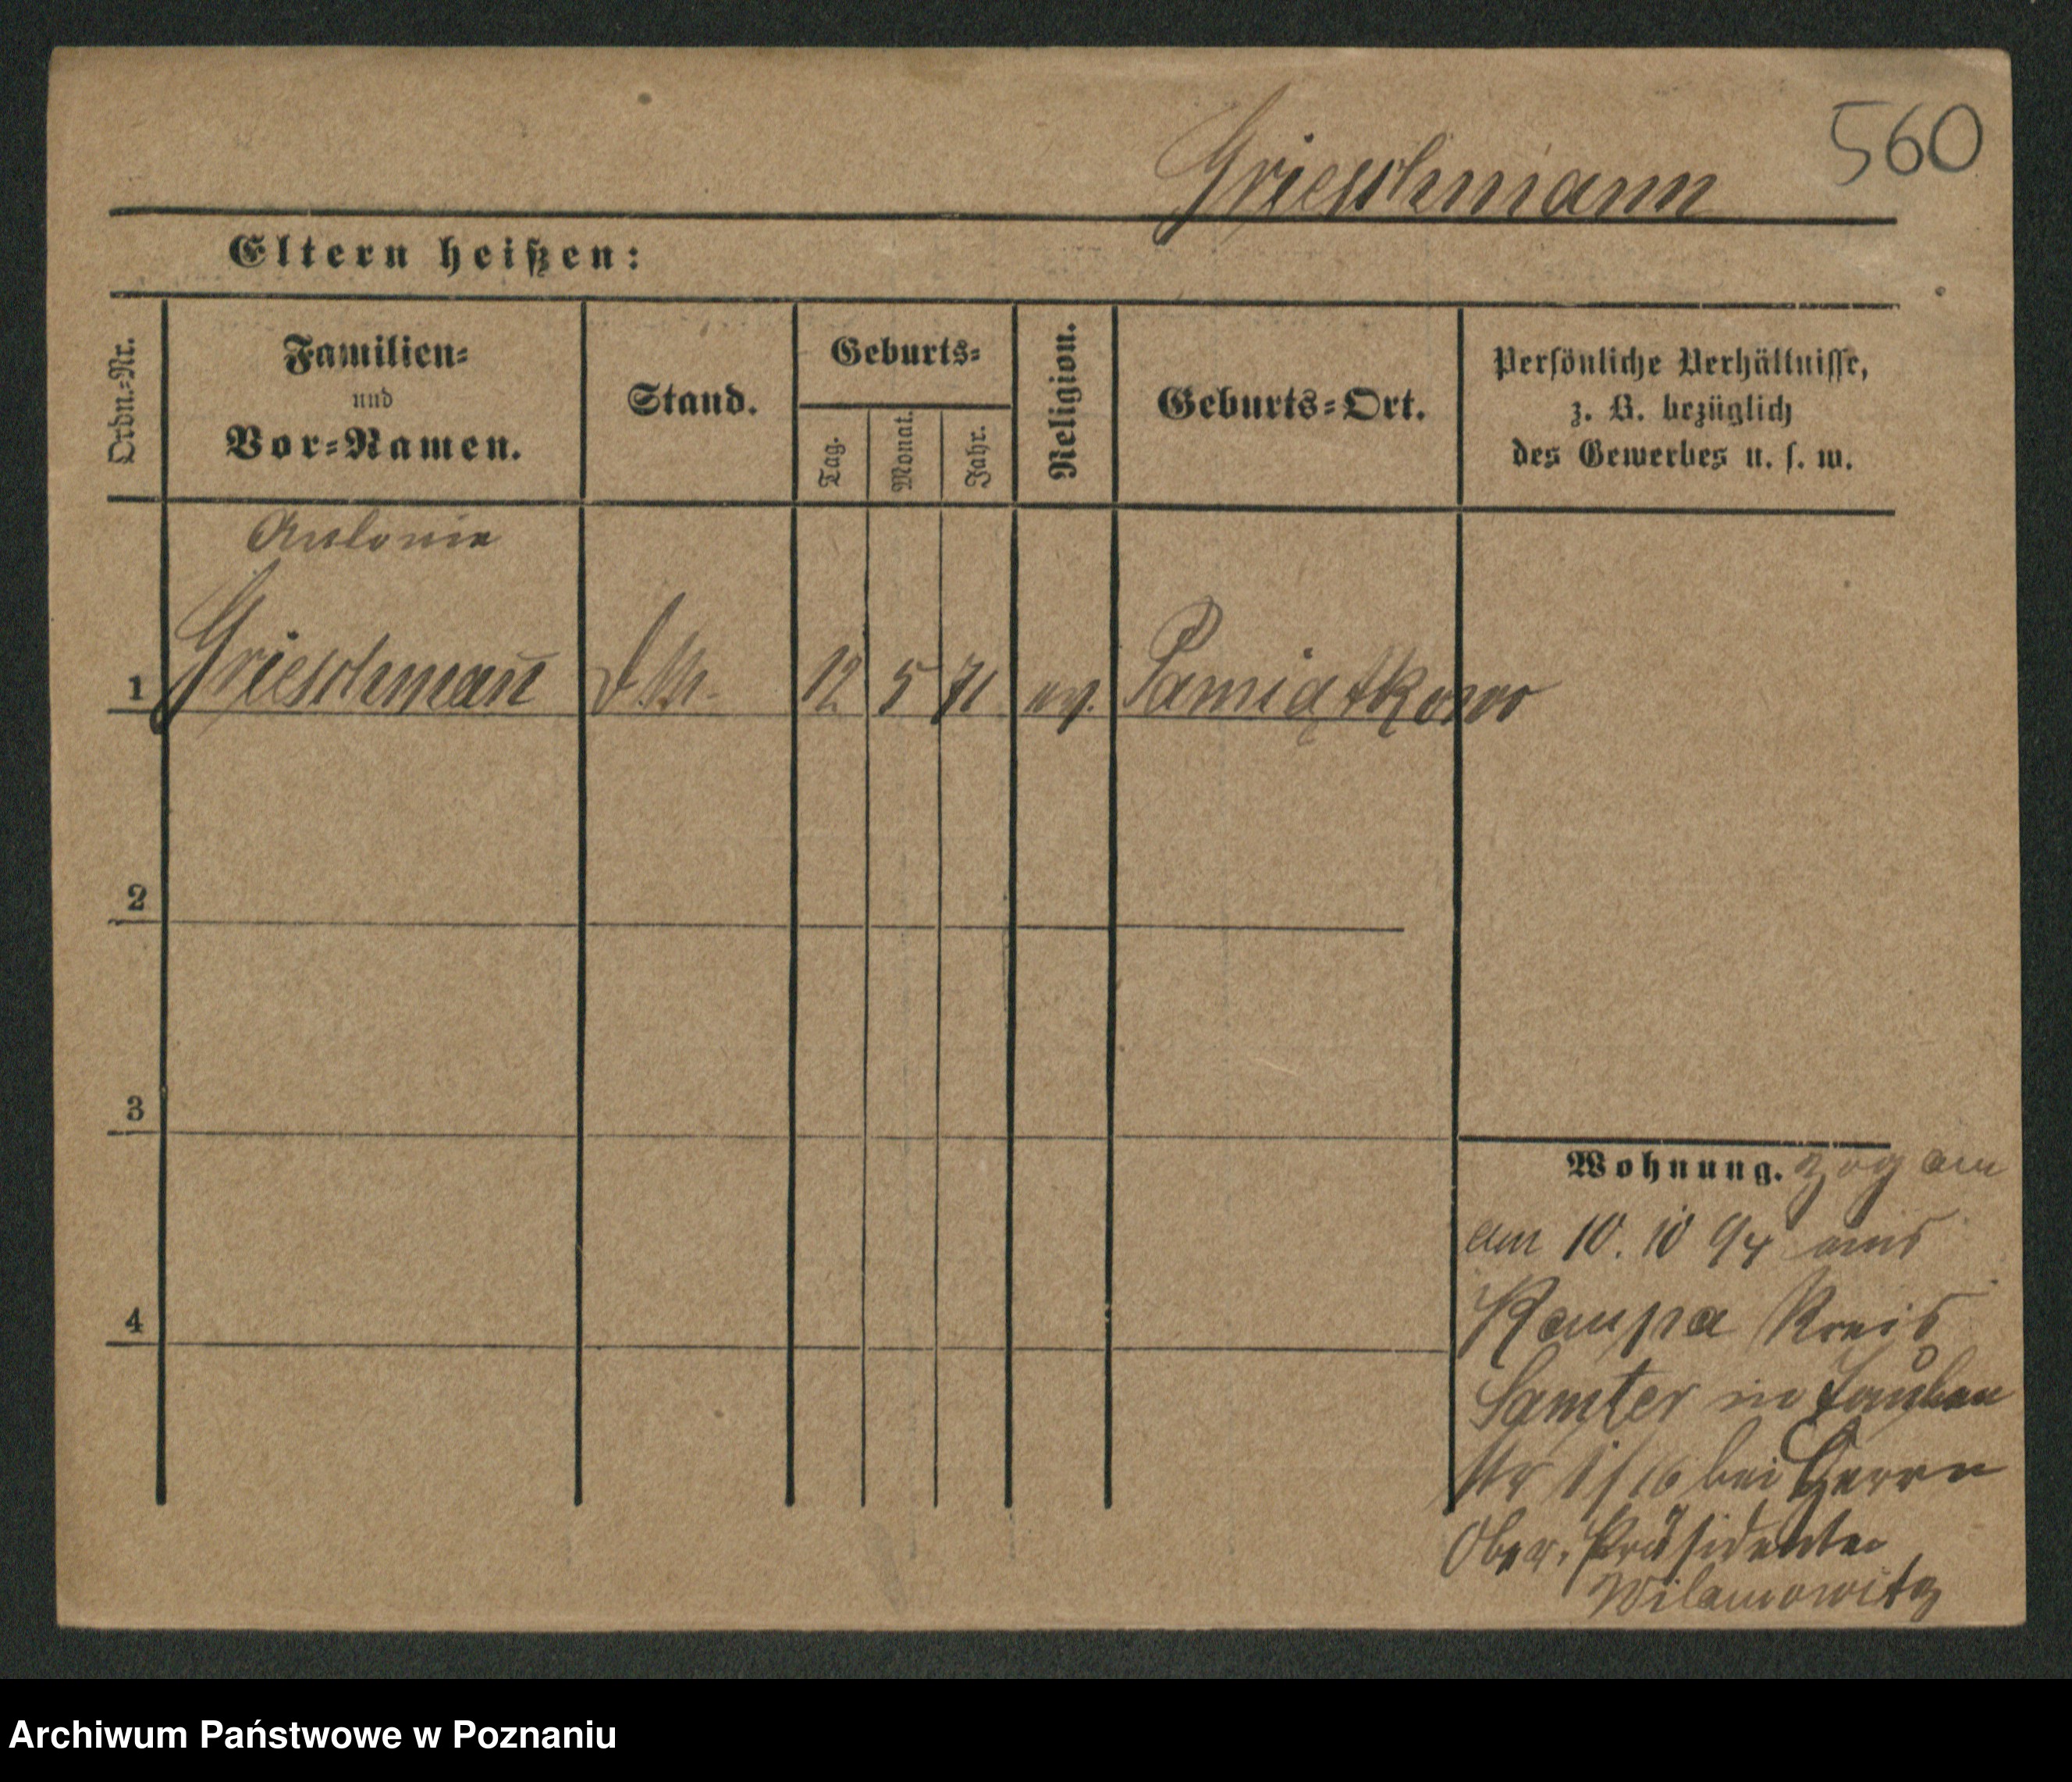 560
Grieschmann
Eltern heißen:
Ordn.=Nr.
Familien=
und
Vor=Namen.
Stand.
Geburts=
Tag.
Monat.
Jahr.
Religion.
Geburts=Ort.
Persönliche Verhältnisse,
z. B. bezüglich
des Gewerbes u. s. w.
Antonie
1 Grieschmañ D. M. 12 5 71 ev. Pamiątkowo
2
3
4
Wohnung. zog am
am 10. 10 94 aus
Kampa Kreis
Samter in Tauben
str 1/16 bei Herrn
Ober. Präsidenten
Wilamowitz
Archiwum Państwowe w Poznaniu